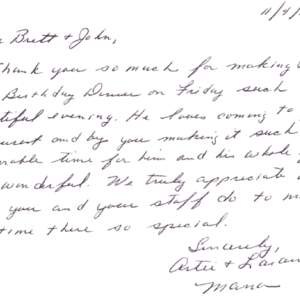 11/4/
Brett & John,
Thank you so much for making
Birthday Dinner on Friday such
tiful evening. He loves coming to
urent and by you making it such
rable time for him and his whole
wonderful. We truly appreciate
you and your staff do to m
time there so special.
Sincerely,
Artie &